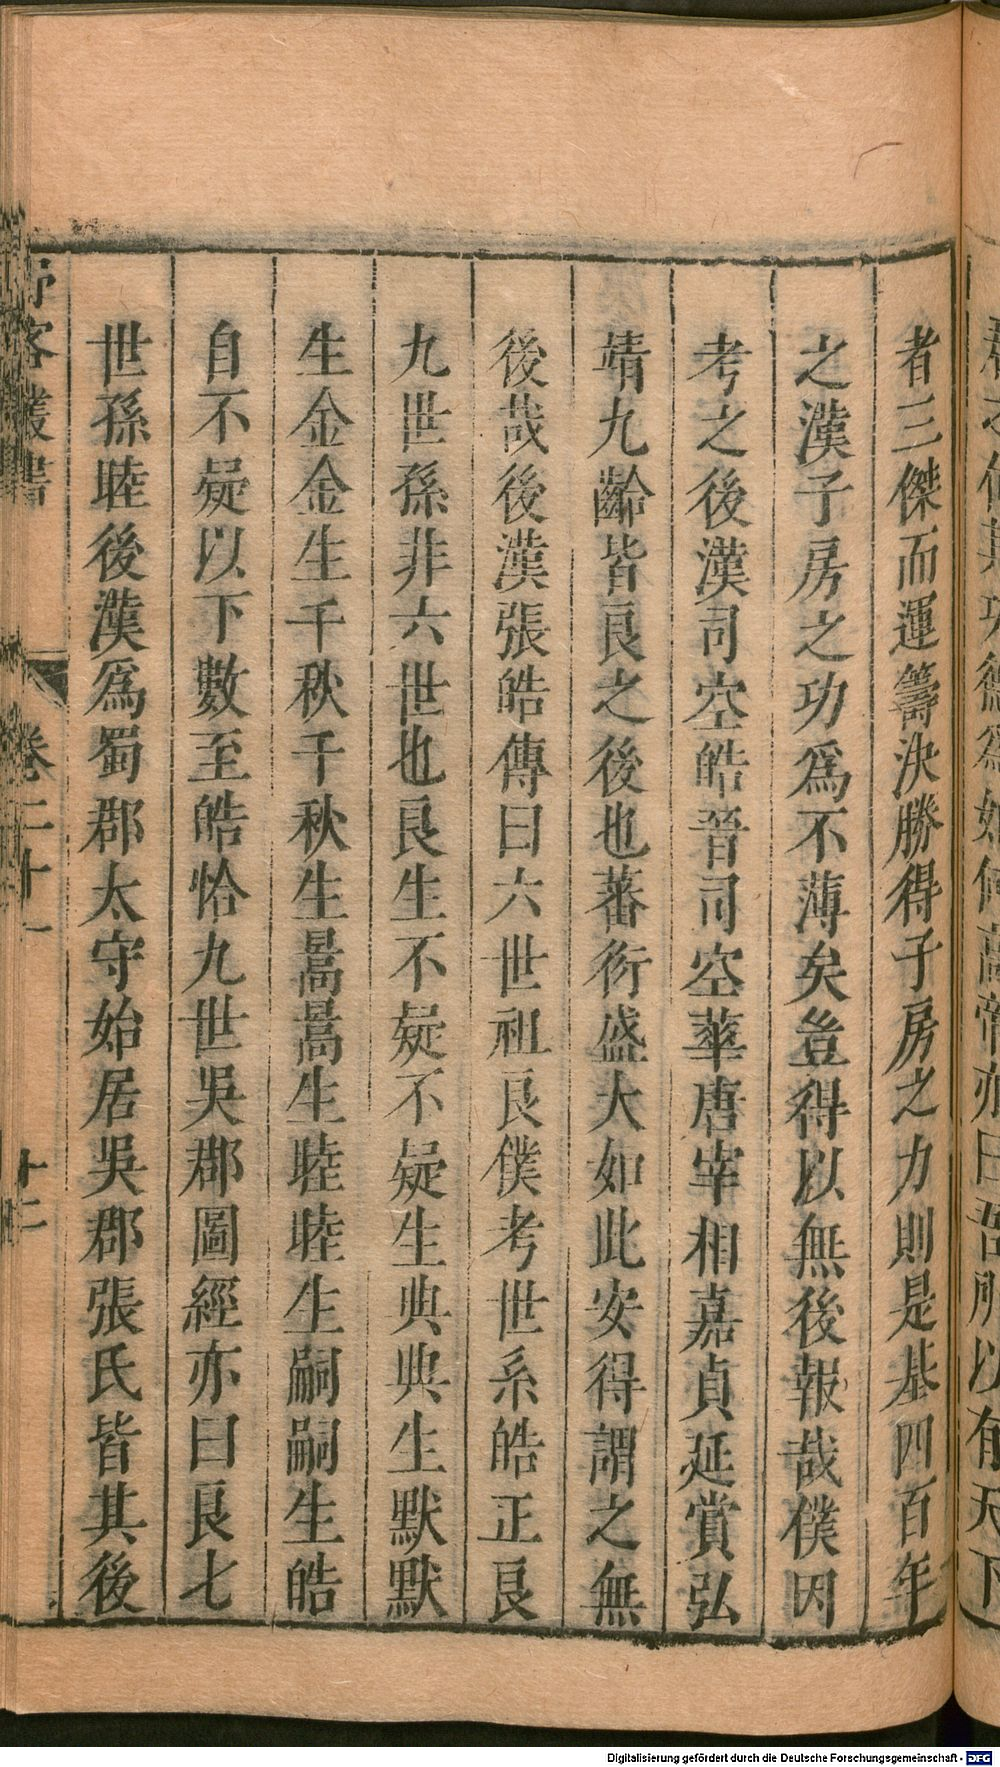 者三傑而運籌決勝得子房之力則是基四百年
之漢子房之功爲不薄矣豈得以無後報哉僕因
考之後漢司空皓晉司空華唐宰相嘉貞延賞弘
靖九齡皆良之後也蕃衍盛大如此安得謂之無
後哉後漢張皓傳曰六世祖良僕考世系皓正良
九世孫非六世也良生不疑不疑生典典生默默
生金金生千秋千秋生暠暠生睦睦生嗣嗣生皓
自不疑以下數至皓恰九世吳郡圖經亦曰良七
世孫睦後漢爲蜀郡太守始居吳郡張氏皆其後
客叢書
卷二十一
十二
Digitalisierung gefördert durch die Deutsche Forschungsgemeinschaft - DFG